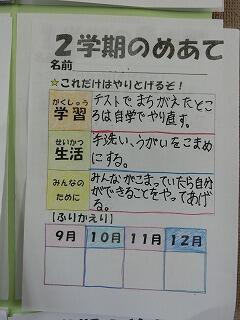 2学期のめあて
名前
★これだけはやりとげるぞ!
がくしゅう
学習
テストでまちがえたとこ
ろは自学でやり直す。
せいかつ
生活
手洗い、うがいをこまめ
にする。
みんなの
ために
みんながこまっていたら自分
ができることをやってあげ
る。
【ふりかえり】
9月 10月 11月 12月